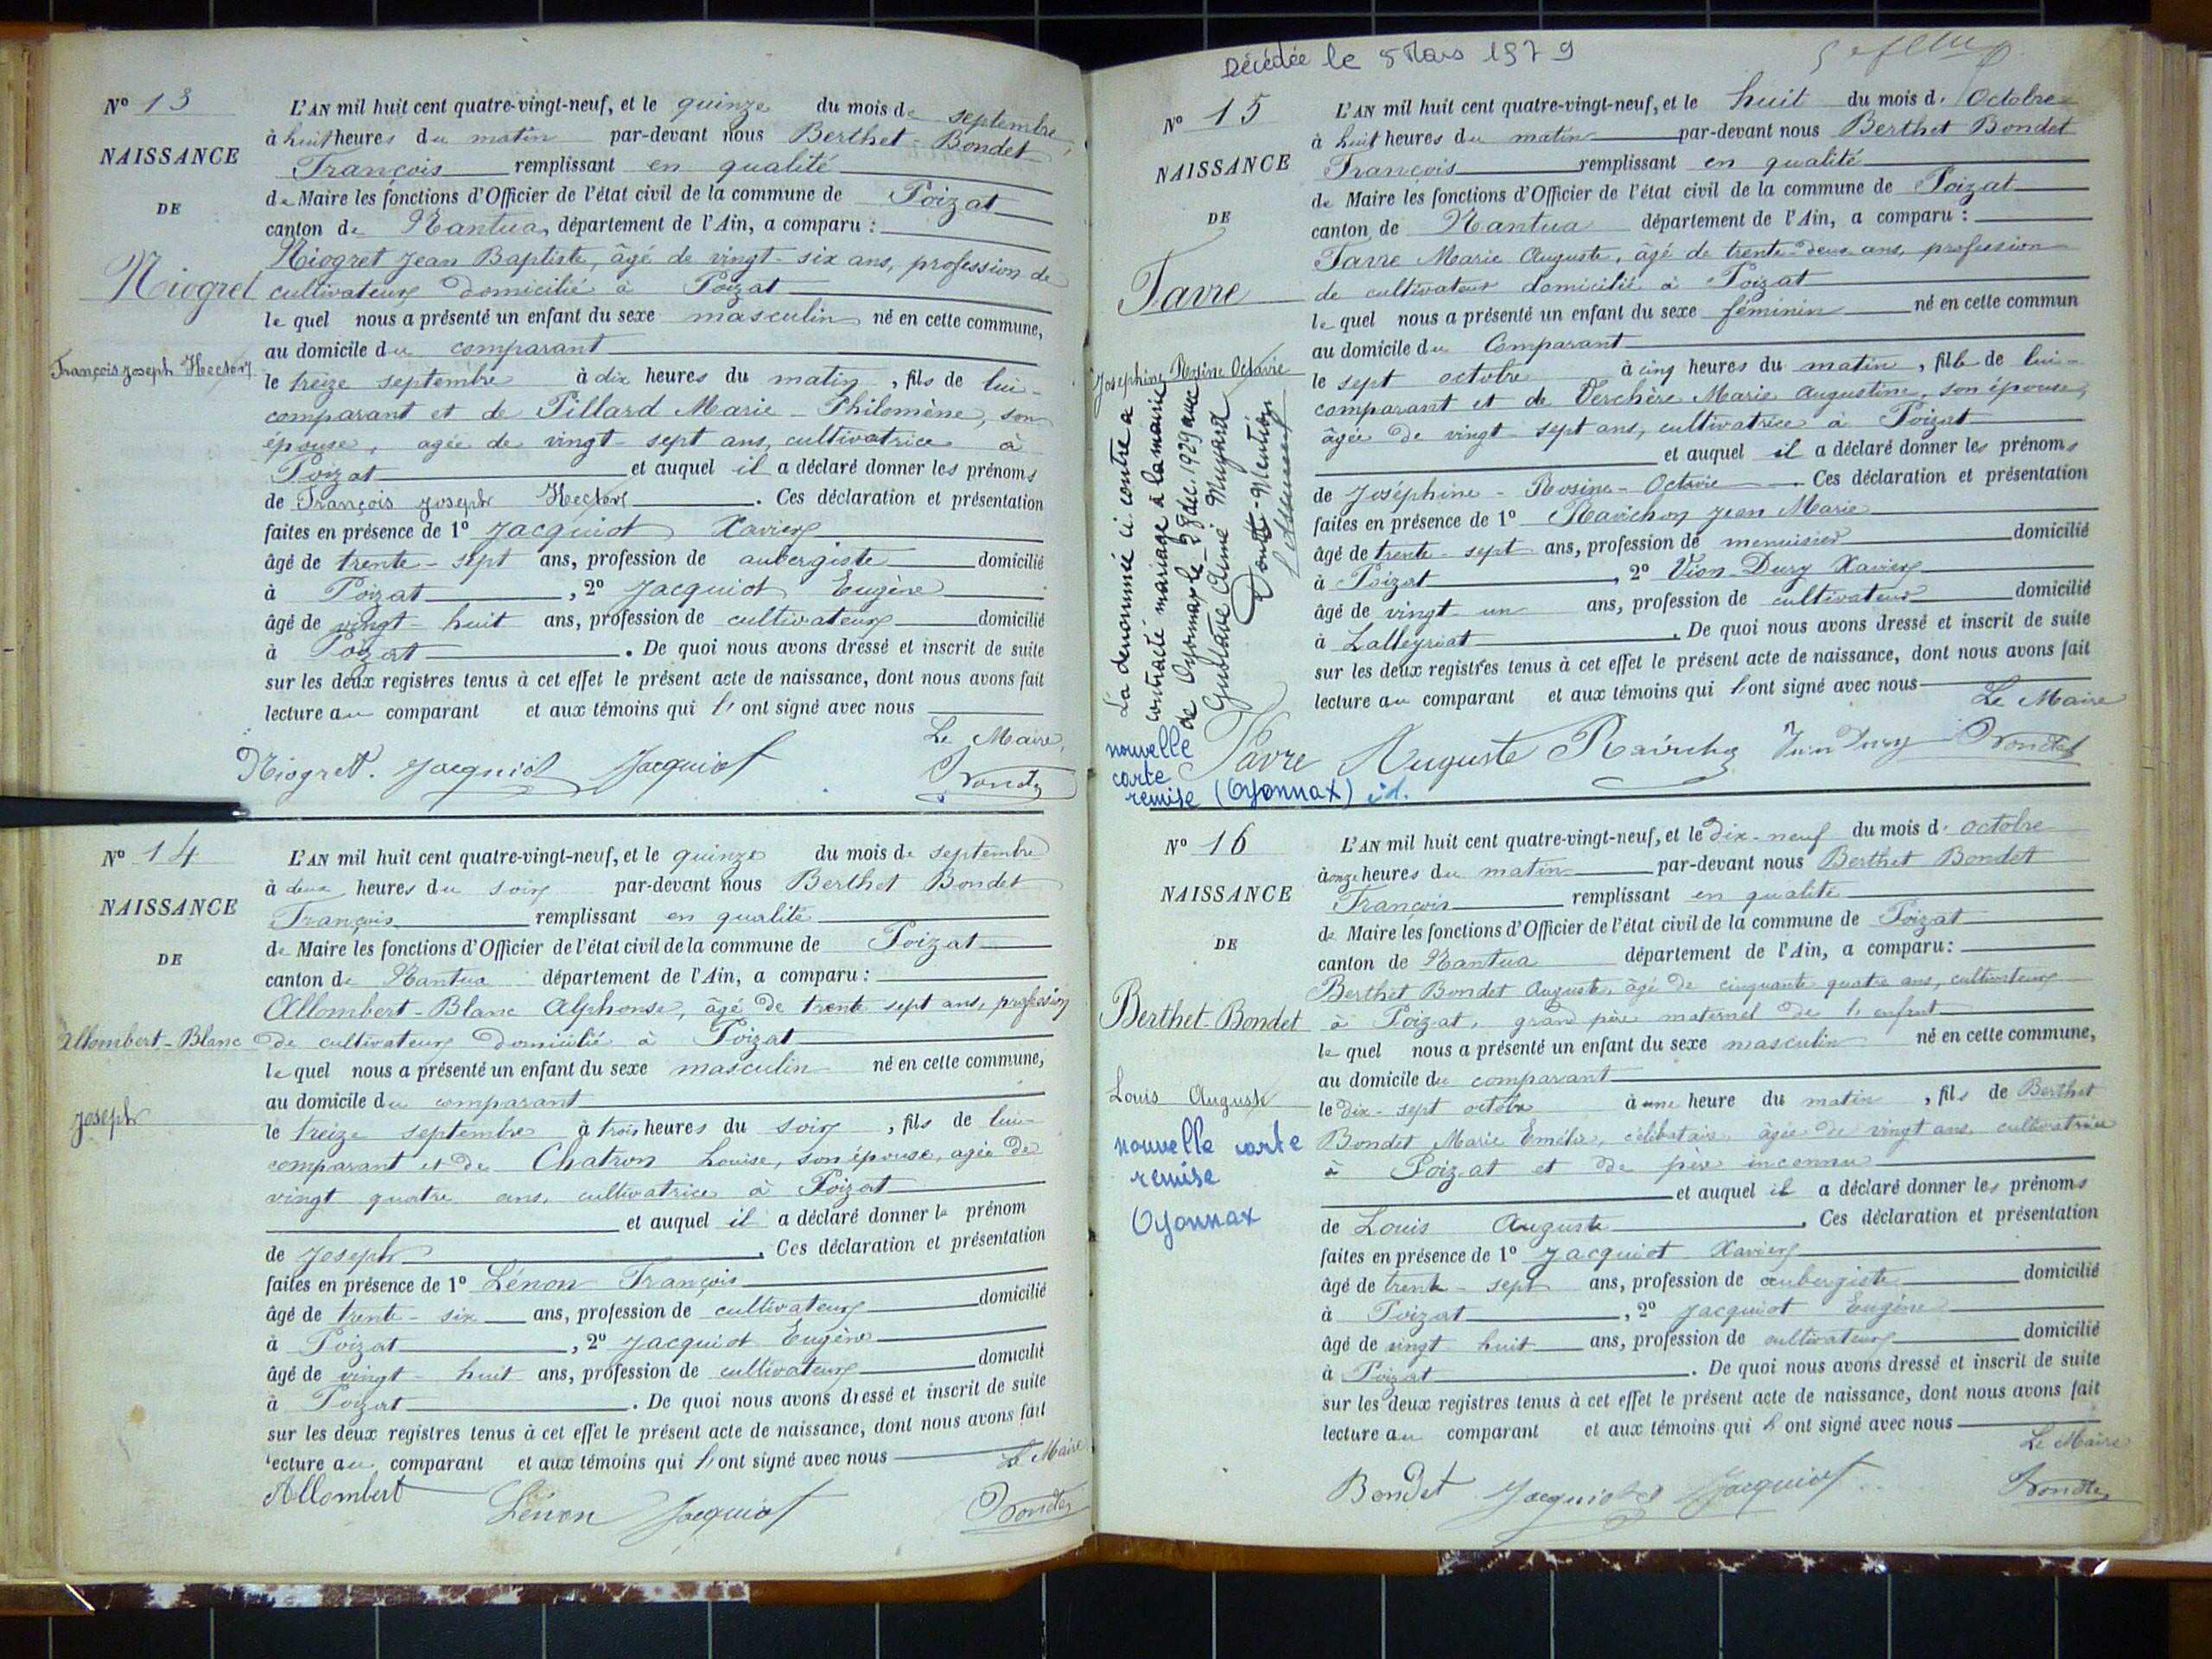 N° 13
NAISSANCE
DE
Niogret
François Joseph Hector
L'AN mil huit cent quatre-vingt-neuf, et le quinze du mois de septembre
à huit heures du matin par-devant nous Berthet-Bondet
François remplissant en qualité
de Maire les fonctions d'Officier de l'état civil de la commune de Poizat
canton de Nantua, département de l'Ain, a comparu :
Niogret Jean Baptiste, âgé de vingt-six ans, profession de
cultivateur domicilié à Poizat
lequel nous a présenté un enfant du sexe masculin né en cette commune,
au domicile du comparant
le treize septembre à dix heures du matin, fils de lui-
comparant et de Pillard Marie-Philomène, son
épouse, agée de vingt-sept ans, cultivatrice à
Poizat et auquel il a déclaré donner les prénoms
de François Joseph Hector. Ces déclaration et présentation
faites en présence de 1° Jacquiot Xavier
âgé de trente-sept ans, profession de aubergiste domicilié
à Poizat, 2° Jacquiot Eugène
âgé de vingt-huit ans, profession de cultivateur domicilié
à Poizat. De quoi nous avons dressé et inscrit de suite
sur les deux registres tenus à cet effet le présent acte de naissance, dont nous avons fait
lecture au comparant et aux témoins qui l'ont signé avec nous
Le Maire,
Niogret. Jacquiot Jacquiot Bondet
N° 14
NAISSANCE
DE
Allombert-Blanc
Joseph
L'AN mil huit cent quatre-vingt-neuf, et le quinze du mois de septembre
à deux heures du soir par-devant nous Berthet Bondet
François remplissant en qualité
de Maire les fonctions d'Officier de l'état civil de la commune de Poizat
canton de Nantua département de l'Ain, a comparu :
Allombert-Blanc Alphonse, âgé de trente sept ans, profession
de cultivateur domicilié à Poizat
lequel nous a présenté un enfant du sexe masculin né en cette commune,
au domicile du comparant
le treize septembre à trois heures du soir, fils de lui-
comparant et de Chatron Louise, son épouse, agée de
vingt quatre ans, cultivatrice à Poizat
et auquel il a déclaré donner le prénom
de Joseph. Ces déclaration et présentation
faites en présence de 1° Lénon François
âgé de trente-six ans, profession de cultivateur domicilié
à Poizat, 2° Jacquiot Eugène
âgé de vingt-huit ans, profession de cultivateur domicilié
à Poizat. De quoi nous avons dressé et inscrit de suite
sur les deux registres tenus à cet effet le présent acte de naissance, dont nous avons fait
lecture au comparant et aux témoins qui l'ont signé avec nous
Le Maire
Allombert Lénon Jacquiot Bondet
Décédée le 5 Mars 1979
N° 15
NAISSANCE
DE
Favre
Joséphine Rosine Octavie
La dénommée ci-contre a
contracté mariage à la mairie
de Oyonnax le 28 déc. 1929 avec
Gustave Aimé Mugard
Dont-Mention
nouvelle
carte
remise (Oyonnax) id.
L'AN mil huit cent quatre-vingt-neuf, et le huit du mois d'Octobre
à huit heures du matin par-devant nous Berthet Bondet
François remplissant en qualité
de Maire les fonctions d'Officier de l'état civil de la commune de Poizat
canton de Nantua département de l'Ain, a comparu :
Favre Marie Auguste, âgé de trente-deux ans, profession
de cultivateur domicilié à Poizat
lequel nous a présenté un enfant du sexe féminin né en cette commun
au domicile du Comparant
le sept octobre à cinq heures du matin, fille de lui-
comparant et de Verchère Marie Augustine, son épouse,
âgée de vingt-sept ans, cultivatrice à Poizat
et auquel il a déclaré donner les prénoms
de Joséphine-Rosine-Octavie. Ces déclaration et présentation
faites en présence de 1° Ravichon Jean Marie
âgé de trente-sept ans, profession de menuisier domicilié
à Poizat, 2° Vion-Dury Xavier
âgé de vingt-un ans, profession de cultivateur domicilié
à Lalleyriat. De quoi nous avons dressé et inscrit de suite
sur les deux registres tenus à cet effet le présent acte de naissance, dont nous avons fait
lecture au comparant et aux témoins qui l'ont signé avec nous
Le Maire
Favre Auguste Vion Dury Bondet
N° 16
NAISSANCE
DE
Berthet-Bondet
Louis Auguste
nouvelle carte
remise
Oyonnax
L'AN mil huit cent quatre-vingt-neuf, et le dix-neuf du mois d'octobre
à onze heures du matin par-devant nous Berthet Bondet
François remplissant en qualité
de Maire les fonctions d'Officier de l'état civil de la commune de Poizat
canton de Nantua département de l'Ain, a comparu :
Berthet Bondet Auguste, âgé de cinquante quatre ans, cultivateur
à Poizat, grand père maternel de l'enfant
lequel nous a présenté un enfant du sexe masculin né en cette commune,
au domicile du comparant
le dix-sept octobre à une heure du matin, fils de Berthet
Bondet Marie Emélie, célibataire, âgée de vingt ans, cultivatrice
à Poizat et de père inconnu
et auquel il a déclaré donner les prénoms
de Louis Auguste. Ces déclaration et présentation
faites en présence de 1° Jacquiot Xavier
âgé de trente-sept ans, profession de aubergiste domicilié
à Poizat, 2° Jacquiot Eugène
âgé de vingt huit ans, profession de cultivateur domicilié
à Poizat. De quoi nous avons dressé et inscrit de suite
sur les deux registres tenus à cet effet le présent acte de naissance, dont nous avons fait
lecture au comparant et aux témoins qui l'ont signé avec nous
Le Maire
Bondet Jacquiot Jacquiot Bondet